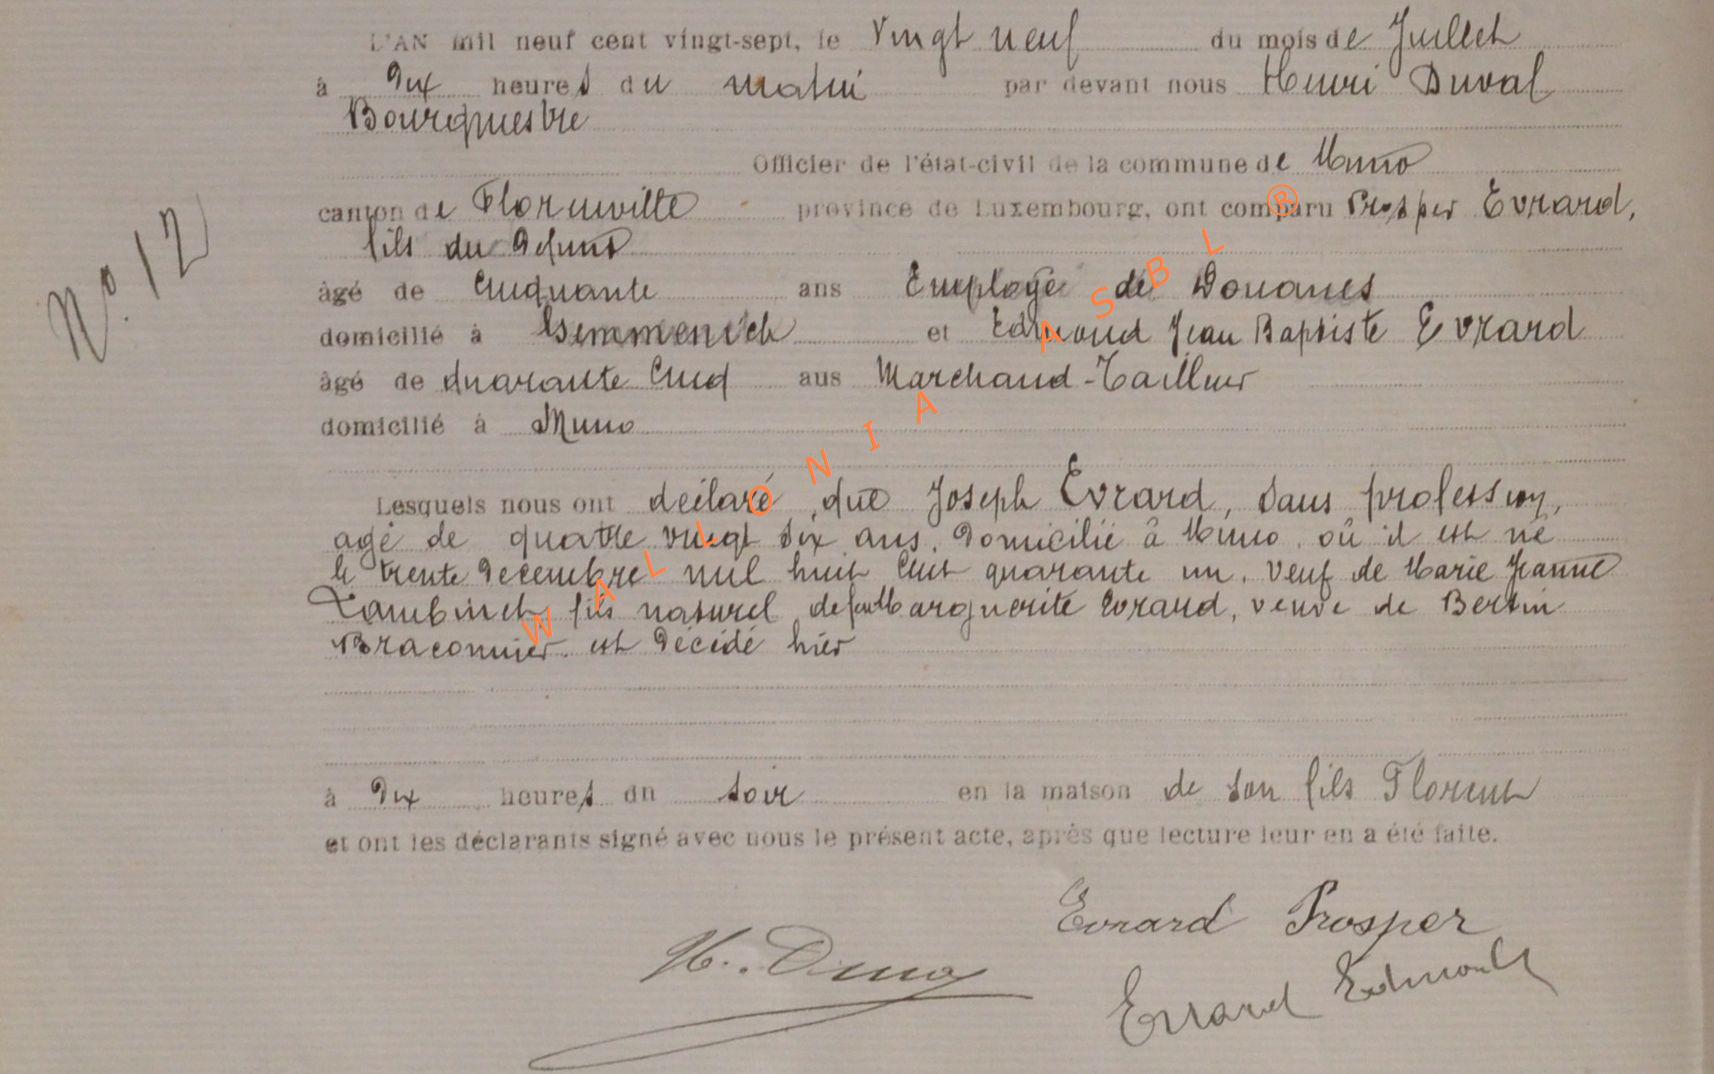 L'AN mil neuf cent vingt-sept, le Vingt neuf du mois de Juillet
à Dix heures du matin par devant nous Henri Duval
Bourgmestre
Officier de l'état-civil de la commune de Muno
N° 12
canton de Florenville province de Luxembourg, ont comparu Prosper Evrard,
fils du Defunt
âgé de Cinquante ans Employé de Douanes
domicilié à Gemmenich et Edmond Jean Baptiste Evrard
âgé de quarante Cinq ans Marchand-Tailleur
domicilié à Muno
Lesquels nous ont déclaré que Joseph Evrard, sans profession,
agé de quatre vingt six ans, Domicilié à Muno, où il est né
le trente Decembre mil huit Cent quarante un, veuf de Marie Jeanne
fils naturel de feu Marguerite Evrard, veuve de Bertin
Braconnier, est Décédé hier
à Dix heures du soir en la maison de son fils Florent
et ont les déclarants signé avec nous le présent acte, après que lecture leur en a été faite.
Evrard Prosper
H. Duval
Evrard Edmond
WALLONIA ASBL ®